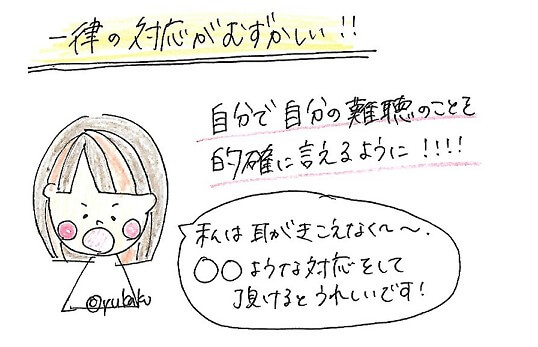 一律の対応がむずかしい!!
自分で自分の難聴のことを
的確に言えるように!!!!
私は耳がきこえなくて〜.
〇〇ような対応をして
頂けるとうれしいです!
@yubaku